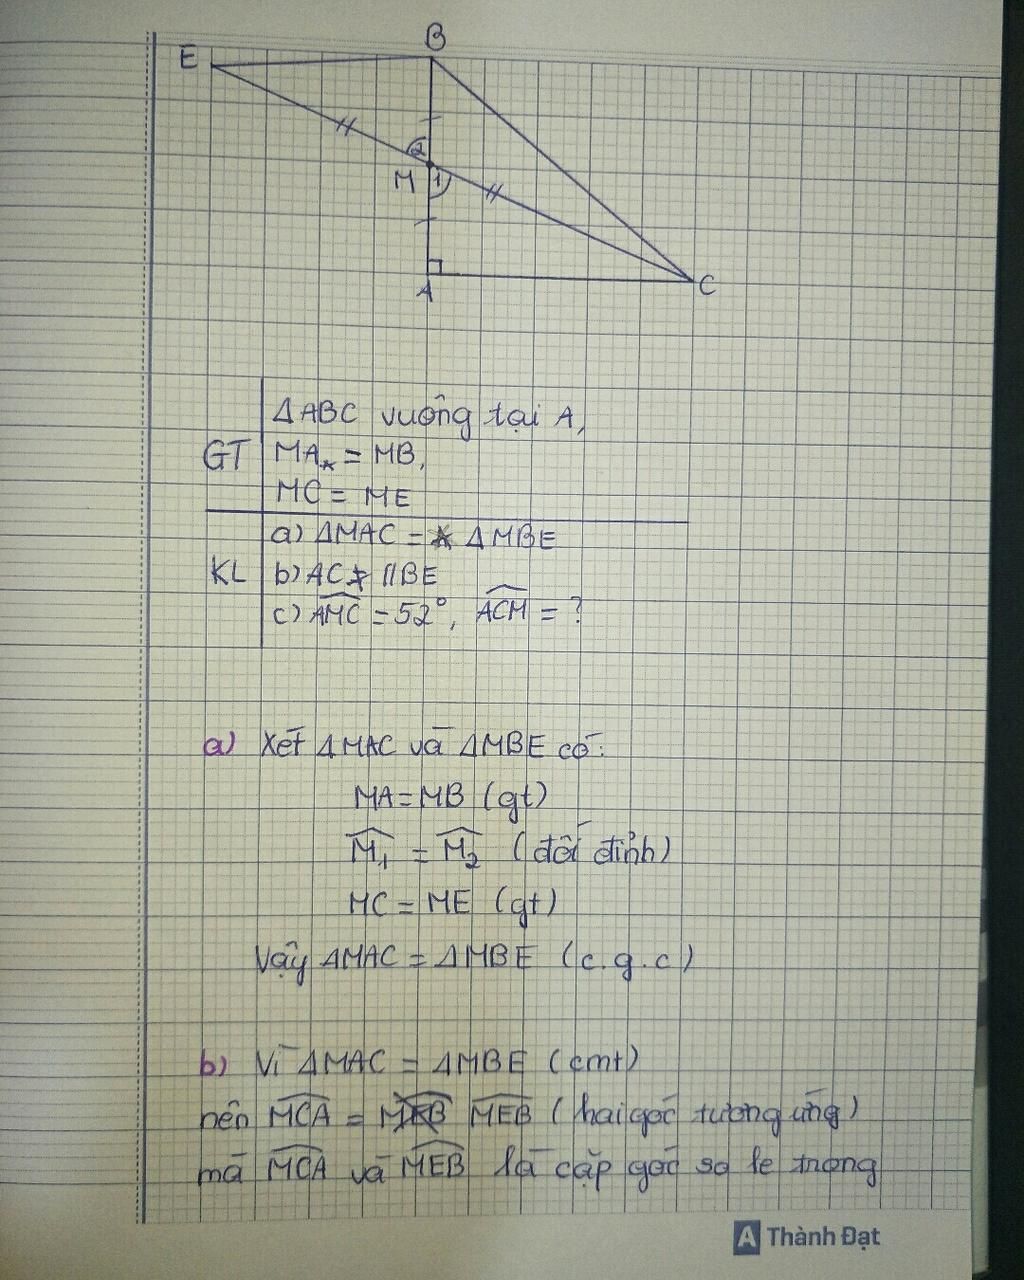 B
E
2
M 1
A
C
ΔABC vuông tại A,
GT MA = MB,
MC = ME
a) ΔMAC = ΔMBE
KL b) AC // BE
c) \widehat{AMC} = 52°, \widehat{ACM} = ?
a) Xét ΔMAC và ΔMBE có:
MA = MB (gt)
\widehat{M₁} = \widehat{M₂} (đối đỉnh)
MC = ME (gt)
Vậy ΔMAC = ΔMBE (c.g.c)
b) Vì ΔMAC = ΔMBE (cmt)
nên \widehat{MCA} = \widehat{MEB} (hai góc tương ứng)
mà \widehat{MCA} và \widehat{MEB} là cặp góc so le trong
A Thành Đạt